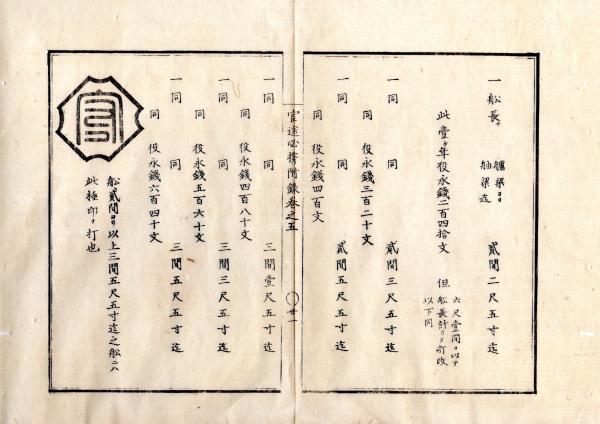 一 船長ヶ 艫梁ヨリ
舳梁迄 貳間二尺五寸迄
此壹ヶ年役永錢二百四拾文 但 六尺壹間ヲ以テ
船長計リヲ打改
以下同
一同 同 貳間三尺五寸迄
同 役永錢三百二十文
一同 同 貳間五尺五寸迄
同 役永錢四百文
官途必携附録卷之五 廿一
一同 同 三間壹尺五寸迄
同 役永錢四百八十文
一同 同 三間三尺五寸迄
同 役永錢五百六十文
一同 同 三間五尺五寸迄
同 役永錢六百四十文
船貳間ヨリ以上三間五尺五寸迄之船ニハ
此極印ヲ打也